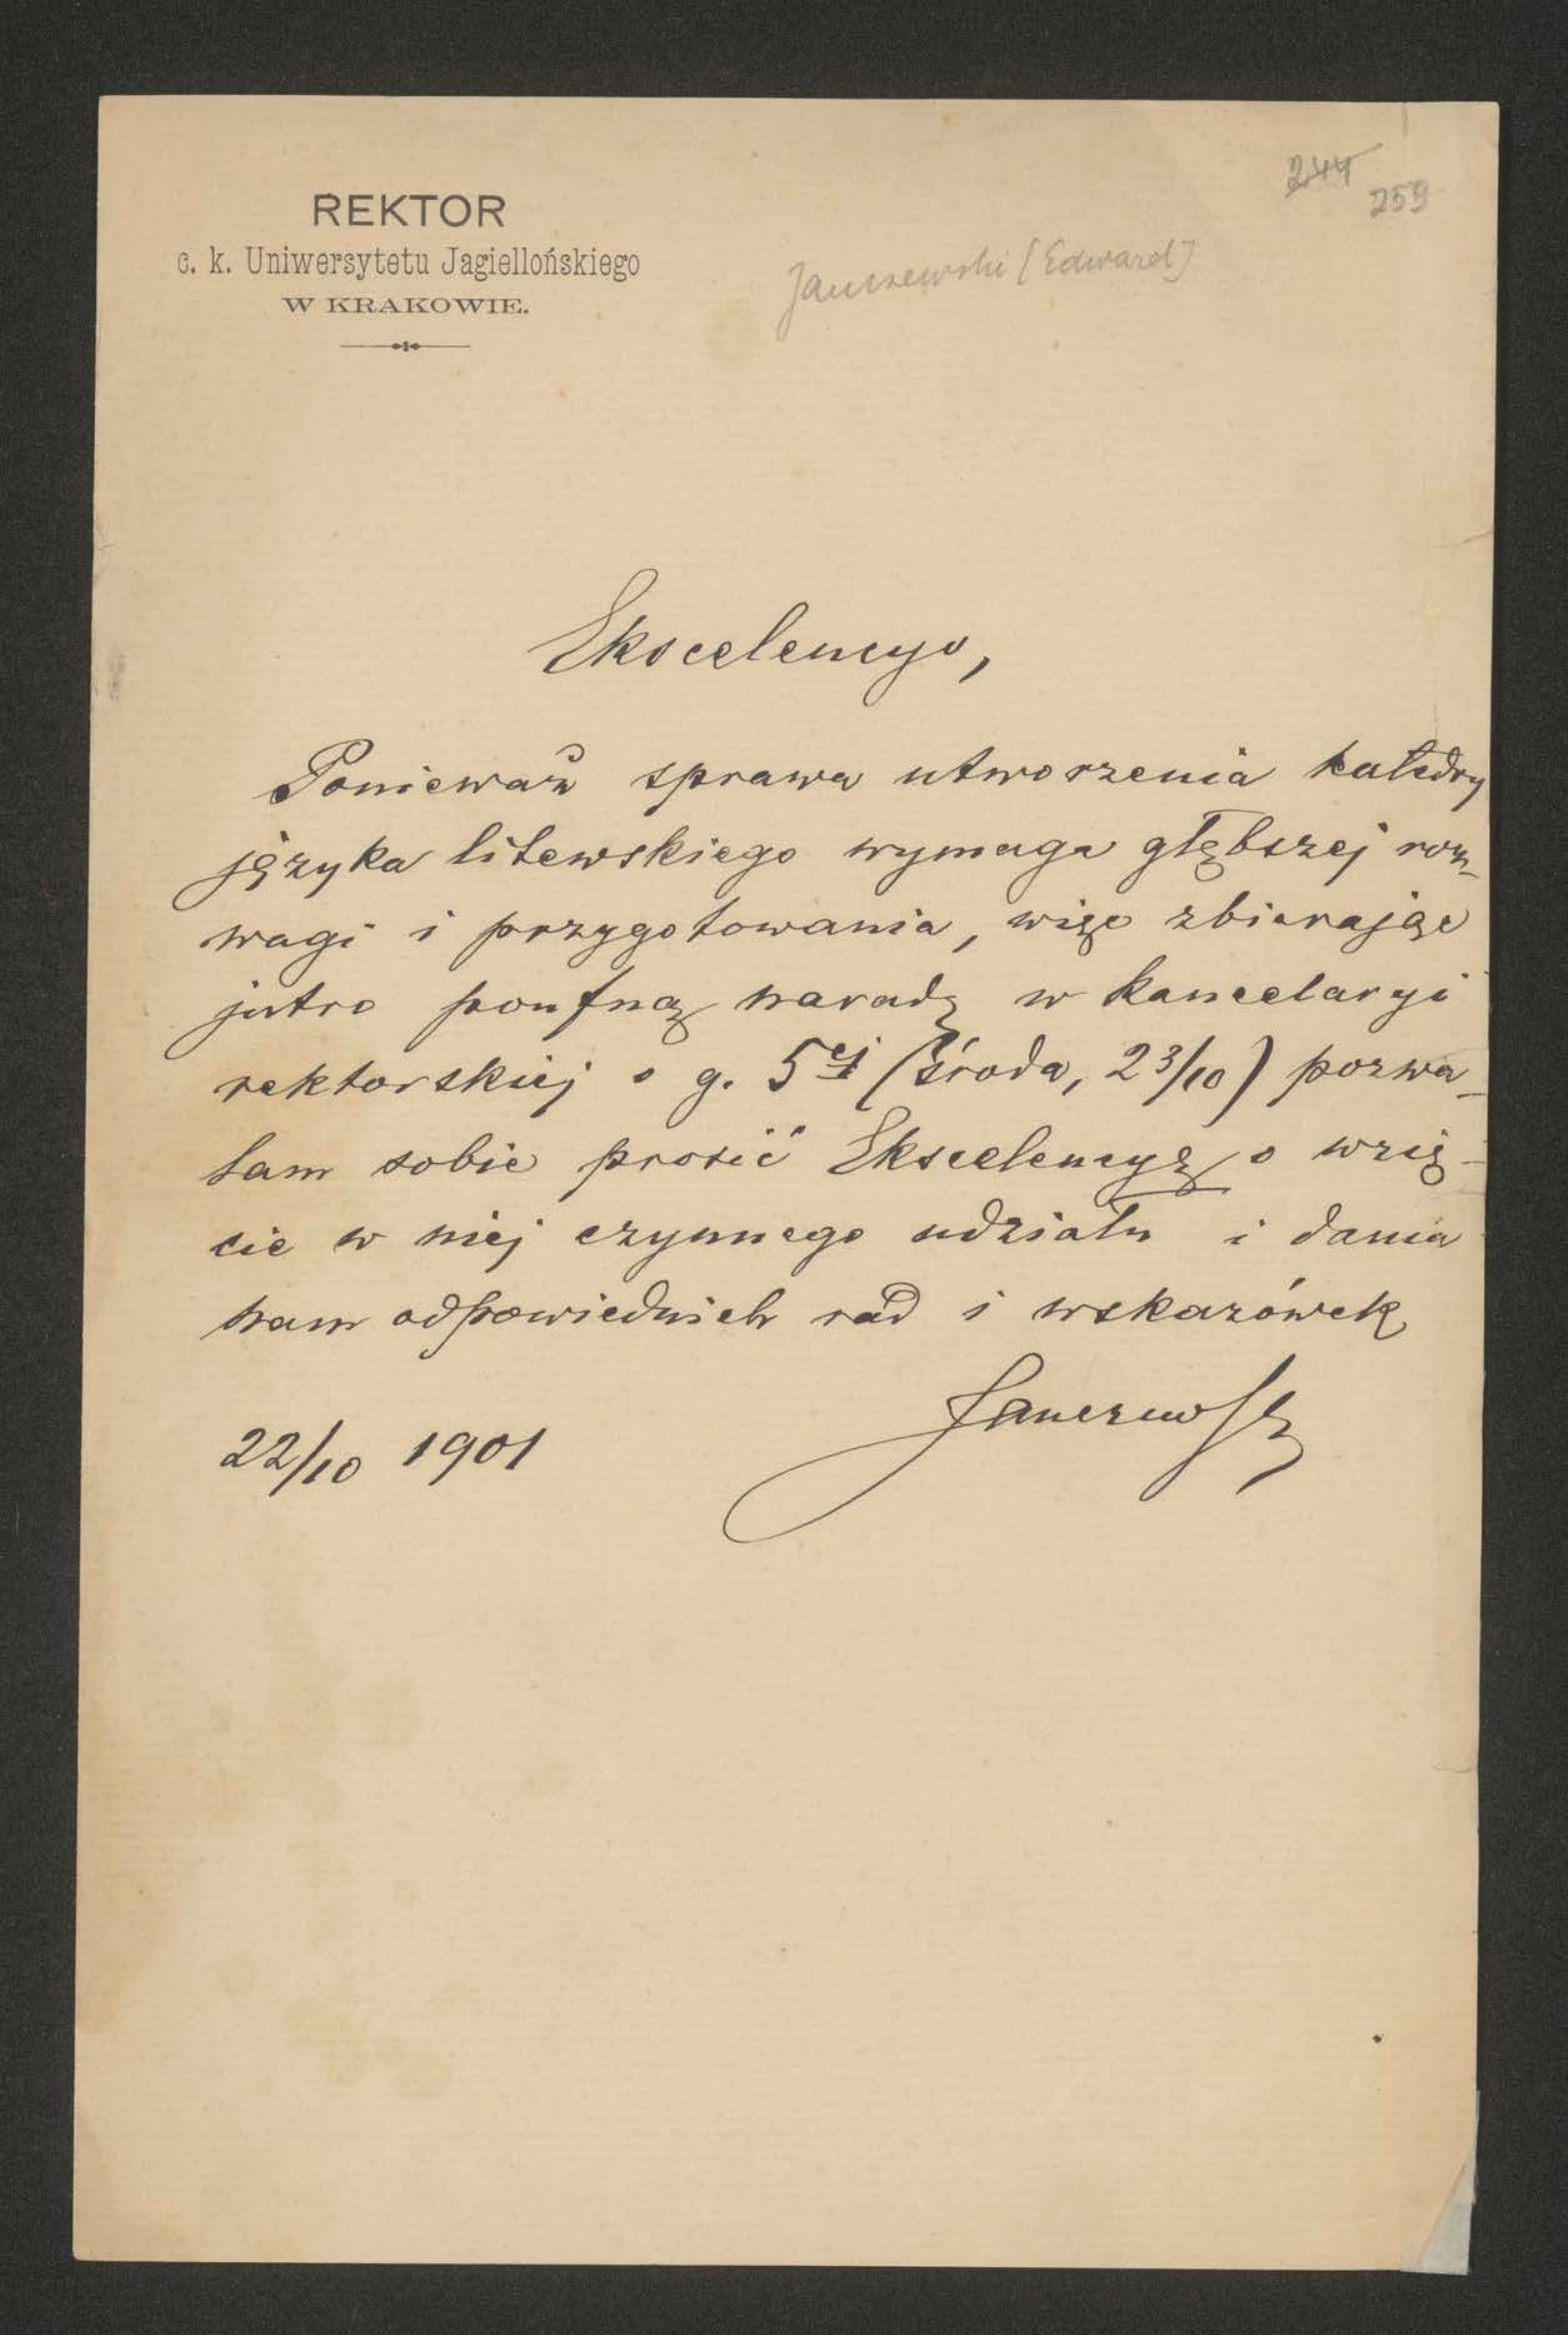 244
259
REKTOR
c. k. Uniwersytetu Jagiellońskiego
W KRAKOWIE.
Janczewski [Edward]
Ekscelencyo,
Ponieważ sprawa utworzenia katedry
języka litewskiego wymaga głębszej roz-
wagi i przygotowania, więc zbierając
jutro poufną naradę w kancelaryi
rektorskiej o g. 5ej (środa, 23/10) pozwa-
lam sobie prosić Ekscelencyę o wzię-
cie w niej czynnego udziału i dania
nam odpowiednich rad i wskazówek
Janczewski
22/10 1901